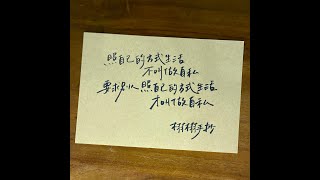 照自己的方式生活
不叫做自私
要求别人照自己的方式生活
才叫做自私
手抄